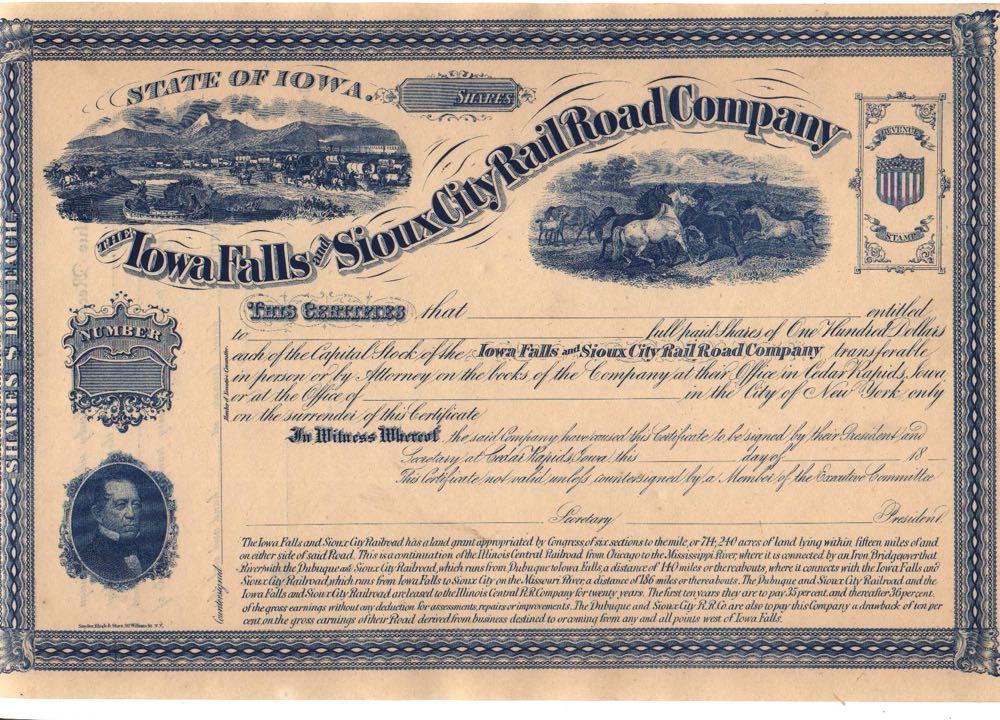 STATE OF IOWA.
SHARES
THE Iowa Falls and Sioux City Rail Road Company
REVENUE
STAMP
SHARES $ 100 EACH
NUMBER
THIS CERTIFIES that entitled
to full paid Shares of One Hundred Dollars
each of the Capital Stock of the Iowa Falls and Sioux City Rail Road Company transferable
in person or by Attorney on the books of the Company at their Office in Cedar Rapids, Iowa
or at the Office of in the City of New York only
on the surrender of this Certificate
In Witness Whereof the said Company have caused this Certificate to be signed by their President and
Secretary at Cedar Rapids, Iowa this day of 18
This Certificate not valid unless countersigned by a Member of the Executive Committee
Secretary President.
Countersigned
Member of Executive Committee
The Iowa Falls and Sioux City Railroad has a land grant appropriated by Congress, of six sections to the mile, or 714,240 acres of land lying within fifteen miles of and
on either side of said Road. This is a continuation of the Illinois Central Railroad from Chicago to the Mississippi River, where it is connected by an Iron Bridge over that
River with the Dubuque and Sioux City Railroad, which runs from Dubuque to Iowa Falls, a distance of 140 miles or thereabouts, where it connects with the Iowa Falls and
Sioux City Railroad, which runs from Iowa Falls to Sioux City on the Missouri River, a distance of 186 miles or thereabouts. The Dubuque and Sioux City Railroad and the
Iowa Falls and Sioux City Railroad are leased to the Illinois Central R.R. Company for twenty years. The first ten years they are to pay 35 percent. and thereafter 36 percent.
of the gross earnings without any deduction for assessments, repairs or improvements. The Dubuque and Sioux City R.R. Co. are also to pay this Company a drawback of ten per
cent. on the gross earnings of their Road derived from business destined to or coming from any and all points west of Iowa Falls.
William St. N.Y.